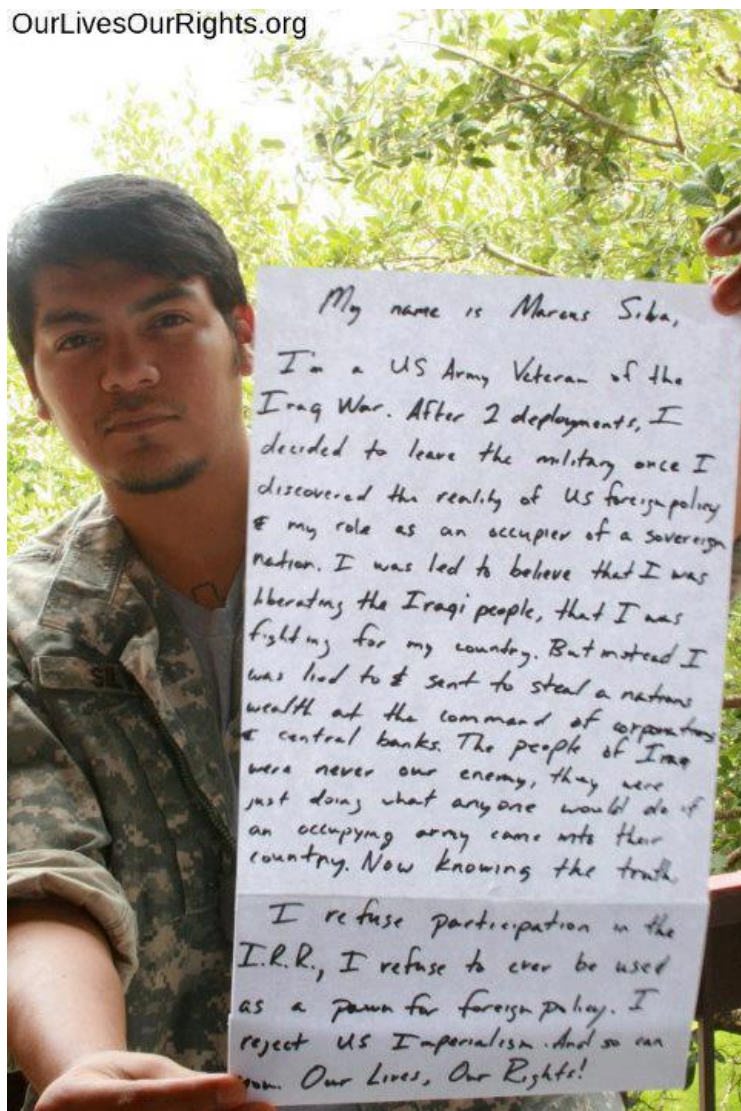 OurLivesOurRights.org
My name is Marcus Silva,
I'm a US Army Veteran of the
Iraq War. After 2 deployments, I
decided to leave the military once I
discovered the reality of US foreign policy
& my role as an occupier of a sovereign
nation. I was led to believe that I was
liberating the Iraqi people, that I was
fighting for my country. But instead I
was lied to & sent to steal a nations
wealth at the command of corporations
& central banks. The people of Iraq
were never our enemy, they were
just doing what anyone would do if
an occupying army came into their
country. Now knowing the truth
I refuse participation in the
I.R.R., I refuse to ever be used
as a pawn for foreign policy. I
reject US Imperialism. And so can
you. Our Lives, Our Rights!
SIL